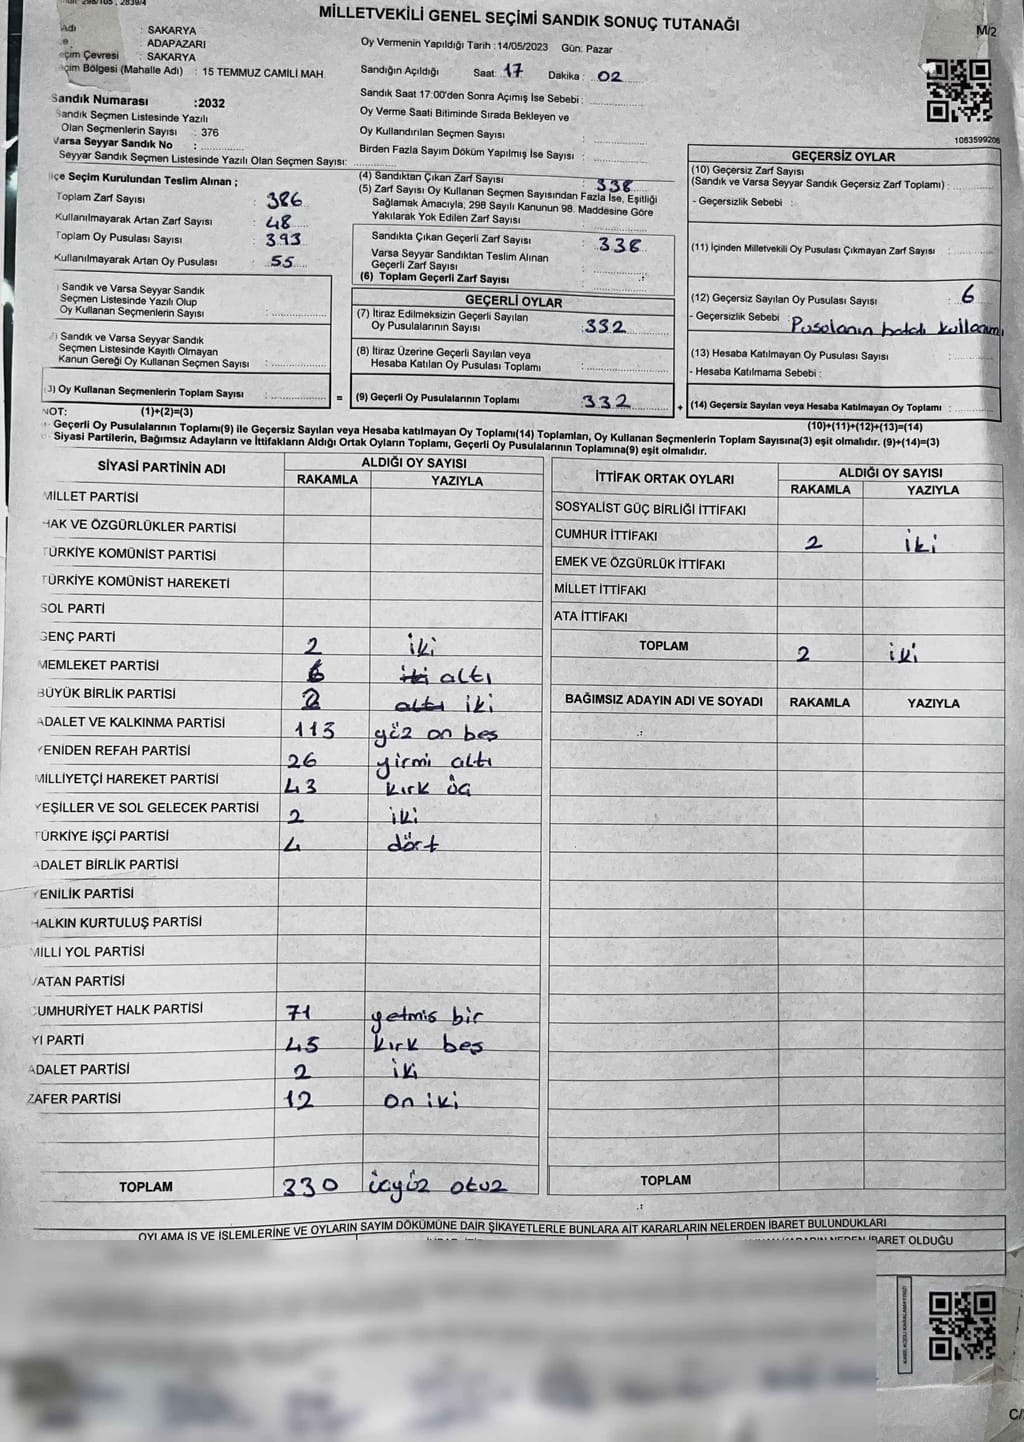 MİLLETVEKİLİ GENEL SEÇİMİ SANDIK SONUÇ TUTANAĞI
M/2
Adı : SAKARYA
: ADAPAZARI
eçim Çevresi : SAKARYA
eçim Bölgesi (Mahalle Adı) : 15 TEMMUZ CAMİLİ MAH.
Oy Vermenin Yapıldığı Tarih : 14/05/2023 Gün: Pazar
Sandığın Açıldığı Saat: 17 Dakika : 02
Sandık Saat 17:00'den Sonra Açımış İse Sebebi :
Oy Verme Saati Bitiminde Sırada Bekleyen ve
Oy Kullandırılan Seçmen Sayısı :
Birden Fazla Sayım Döküm Yapılmış İse Sayısı :
Sandık Numarası :2032
Sandık Seçmen Listesinde Yazılı
Olan Seçmenlerin Sayısı : 376
Varsa Seyyar Sandık No :
Seyyar Sandık Seçmen Listesinde Yazılı Olan Seçmen Sayısı:
1083599206
lçe Seçim Kurulundan Teslim Alınan ;
Toplam Zarf Sayısı : 386
Kullanılmayarak Artan Zarf Sayısı : 48
Toplam Oy Pusulası Sayısı : 393
Kullanılmayarak Artan Oy Pusulası : 55
) Sandık ve Varsa Seyyar Sandık
Seçmen Listesinde Yazılı Olup
Oy Kullanan Seçmenlerin Sayısı :
) Sandık ve Varsa Seyyar Sandık
Seçmen Listesinde Kayıtlı Olmayan
Kanun Gereği Oy Kullanan Seçmen Sayısı :
3) Oy Kullanan Seçmenlerin Toplam Sayısı : =
(4) Sandıktan Çıkan Zarf Sayısı : 338
(5) Zarf Sayısı Oy Kullanan Seçmen Sayısından Fazla İse, Eşitliği
Sağlamak Amacıyla, 298 Sayılı Kanunun 98. Maddesine Göre
Yakılarak Yok Edilen Zarf Sayısı :
Sandıkta Çıkan Geçerli Zarf Sayısı : 338
Varsa Seyyar Sandıktan Teslim Alınan
Geçerli Zarf Sayısı :
(6) Toplam Geçerli Zarf Sayısı :
GEÇERLİ OYLAR
(7) İtiraz Edilmeksizin Geçerli Sayılan
Oy Pusulalarının Sayısı : 332
(8) İtiraz Üzerine Geçerli Sayılan veya
Hesaba Katılan Oy Pusulası Toplamı :
(9) Geçerli Oy Pusulalarının Toplamı : 332 +
GEÇERSİZ OYLAR
(10) Geçersiz Zarf Sayısı
(Sandık ve Varsa Seyyar Sandık Geçersiz Zarf Toplamı) :
- Geçersizlik Sebebi :
(11) İçinden Milletvekili Oy Pusulası Çıkmayan Zarf Sayısı :
(12) Geçersiz Sayılan Oy Pusulası Sayısı : 6
- Geçersizlik Sebebi : Pusulanın hatalı kullanımı
(13) Hesaba Katılmayan Oy Pusulası Sayısı :
- Hesaba Katılmama Sebebi :
(14) Geçersiz Sayılan veya Hesaba Katılmayan Oy Toplamı :
NOT: (1)+(2)=(3) (10)+(11)+(12)+(13)=(14)
- Geçerli Oy Pusulalarının Toplamı(9) ile Geçersiz Sayılan veya Hesaba katılmayan Oy Toplamı(14) Toplamları, Oy Kullanan Seçmenlerin Toplam Sayısına(3) eşit olmalıdır. (9)+(14)=(3)
Siyasi Partilerin, Bağımsız Adayların ve İttifakların Aldığı Ortak Oyların Toplamı, Geçerli Oy Pusulalarının Toplamına(9) eşit olmalıdır.
SİYASİ PARTİNİN ADI ALDIĞI OY SAYISI
RAKAMLA YAZIYLA
MİLLET PARTİSİ
HAK VE ÖZGÜRLÜKLER PARTİSİ
TÜRKİYE KOMÜNİST PARTİSİ
TÜRKİYE KOMÜNİST HAREKETİ
SOL PARTİ
GENÇ PARTİ 2 iki
MEMLEKET PARTİSİ 6 iki altı
BÜYÜK BİRLİK PARTİSİ 2 altı iki
ADALET VE KALKINMA PARTİSİ 115 yüz on beş
YENİDEN REFAH PARTİSİ 26 yirmi altı
MİLLİYETÇİ HAREKET PARTİSİ 43 kırk üç
YEŞİLLER VE SOL GELECEK PARTİSİ 2 iki
TÜRKİYE İŞÇİ PARTİSİ 4 dört
ADALET BİRLİK PARTİSİ
YENİLİK PARTİSİ
HALKIN KURTULUŞ PARTİSİ
MİLLİ YOL PARTİSİ
VATAN PARTİSİ
CUMHURİYET HALK PARTİSİ 71 yetmis bir
YI PARTİ 45 kırk beş
ADALET PARTİSİ 2 iki
ZAFER PARTİSİ 12 on iki
TOPLAM 330 üçyüz otuz
İTTİFAK ORTAK OYLARI ALDIĞI OY SAYISI
RAKAMLA YAZIYLA
SOSYALİST GÜÇ BİRLİĞİ İTTİFAKI
CUMHUR İTTİFAKI 2 iki
EMEK VE ÖZGÜRLÜK İTTİFAKI
MİLLET İTTİFAKI
ATA İTTİFAKI
TOPLAM 2 iki
BAĞIMSIZ ADAYIN ADI VE SOYADI RAKAMLA YAZIYLA
TOPLAM
OYLAMA İŞ VE İŞLEMLERİNE VE OYLARIN SAYIM DÖKÜMÜNE DAİR ŞİKAYETLERLE BUNLARA AİT KARARLARIN NELERDEN İBARET BULUNDUKLARI
İBARET OLDUĞU